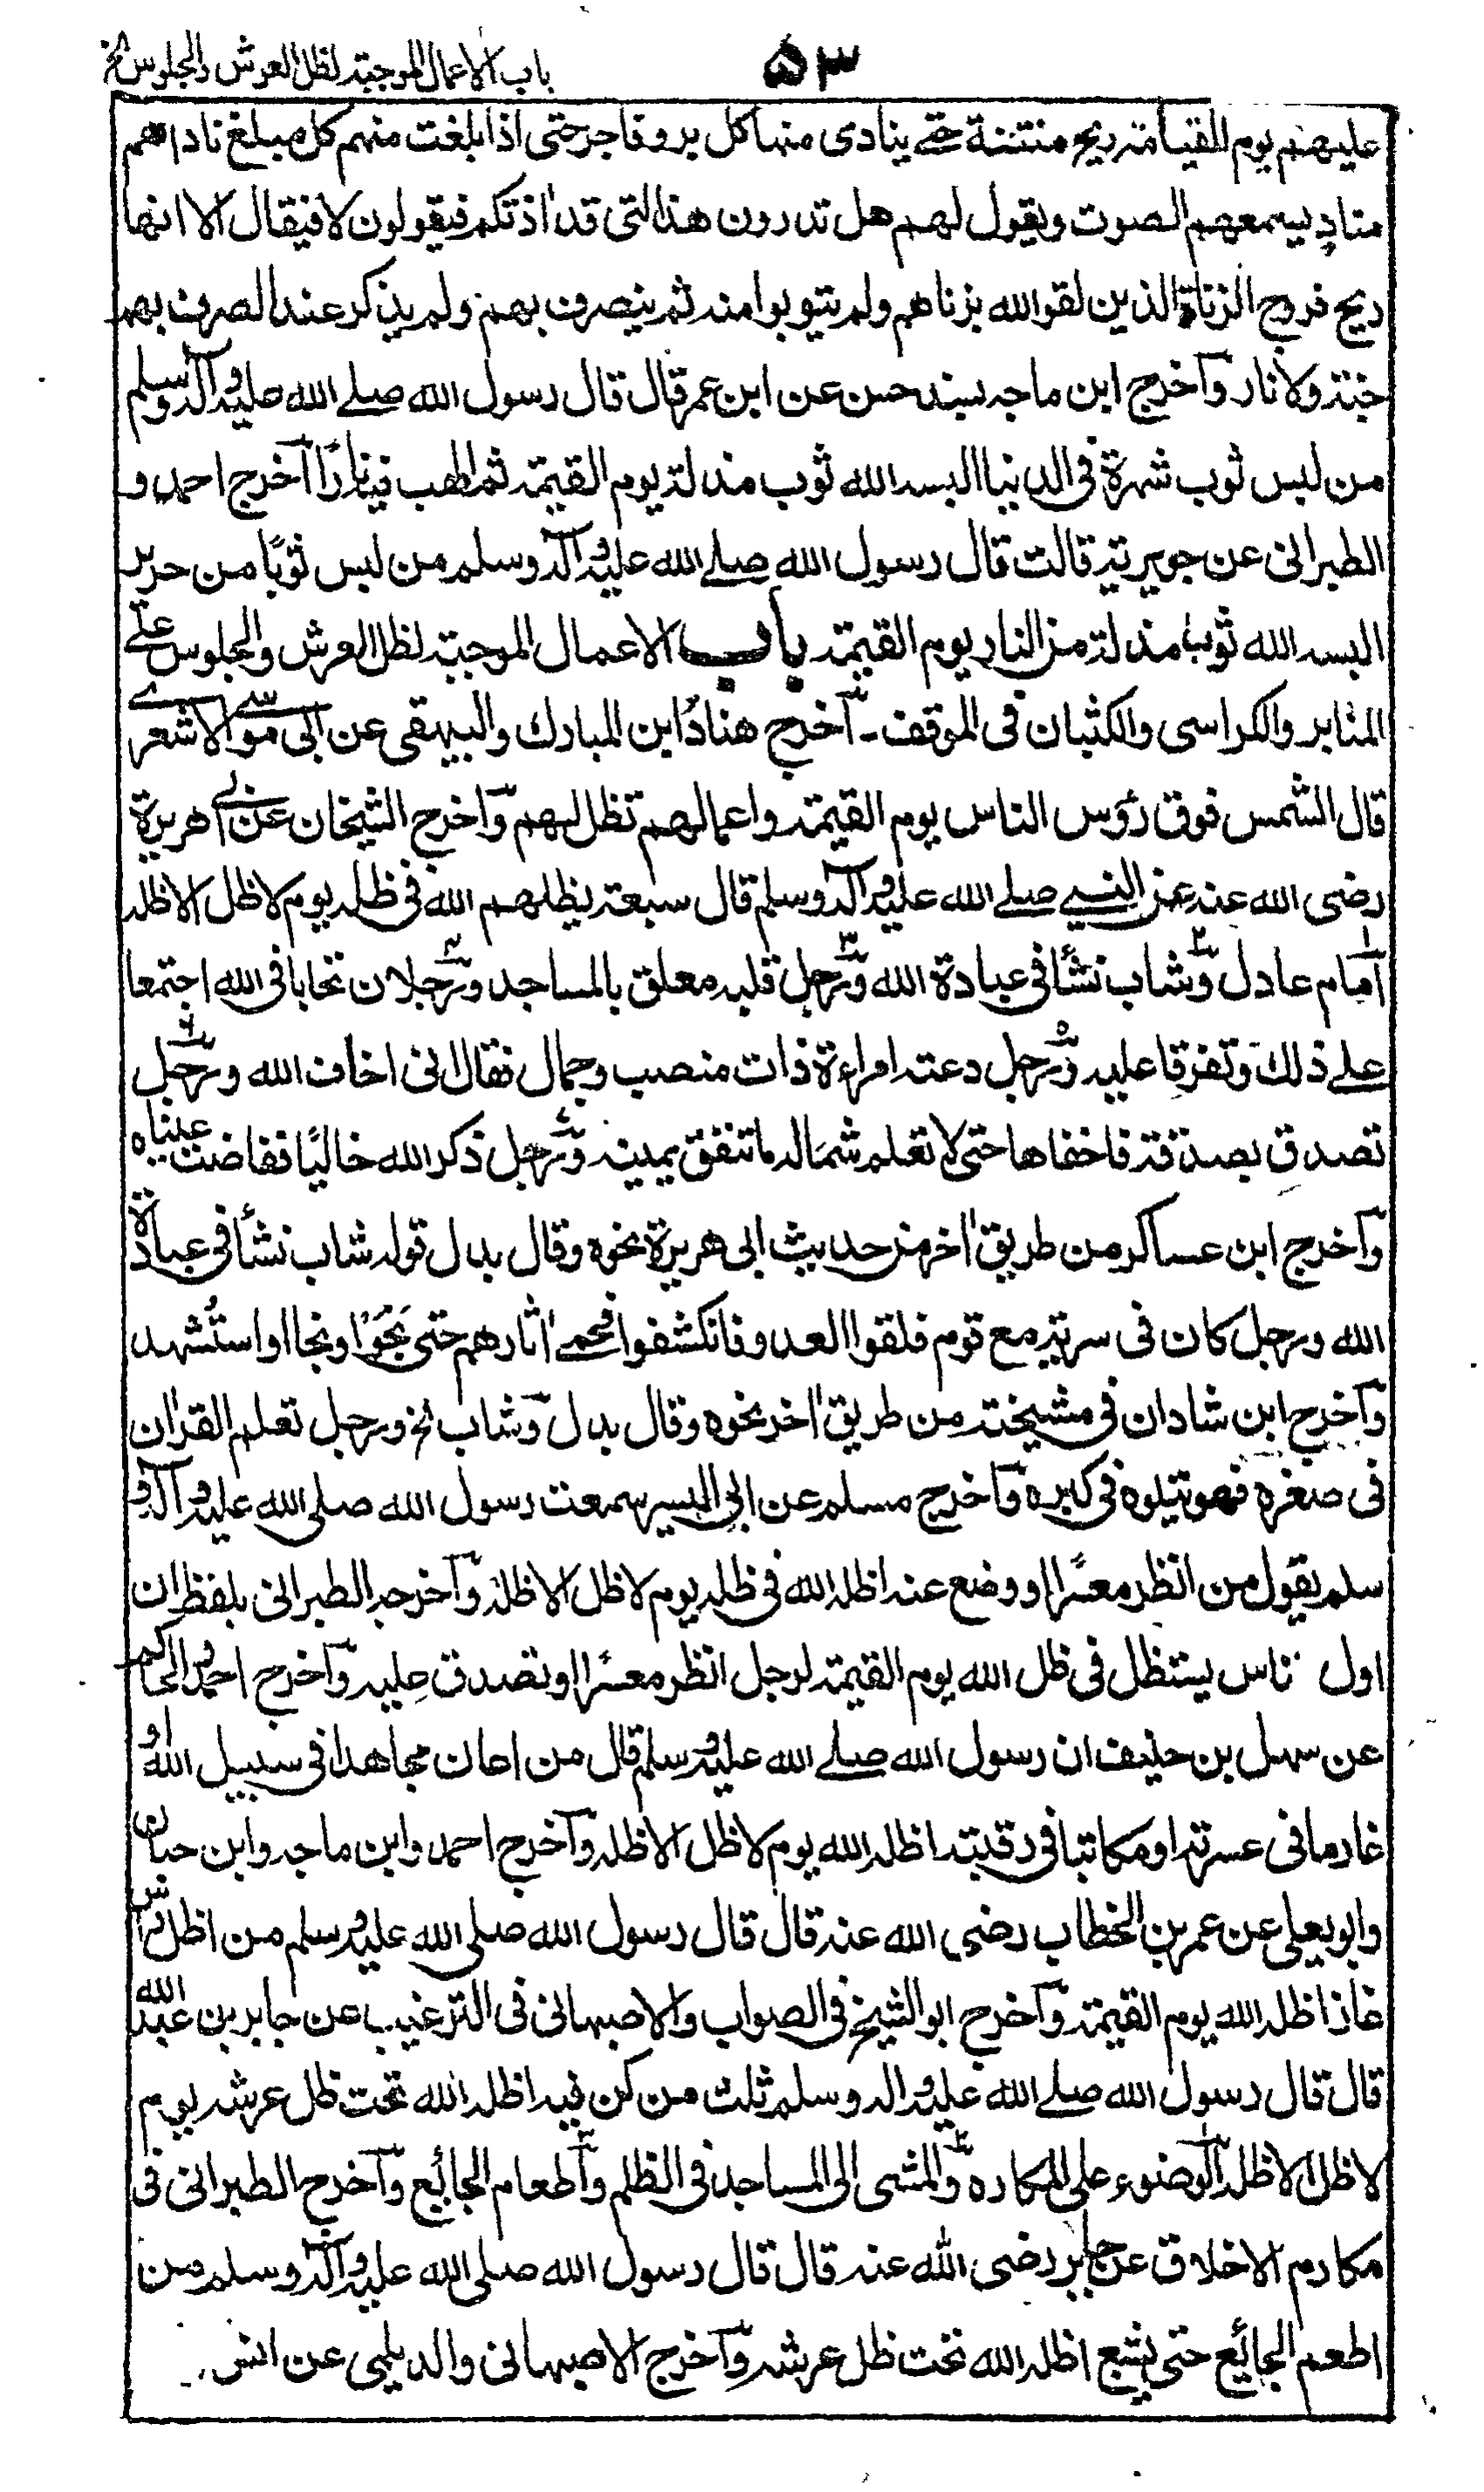 باب الاعمال الموجبة لظل العرش والجلوس الخ
٥٣
عليهم يوم القيامة ريح منتنة حتى ينادى منها كل بر وفاجر حتى اذا بلغت منهم كل مبلغ ناداهم
مناد يسمعهم الصوت ويقول لهم هل تدرون هذا التى قد اذتكم فيقولون لا فيقال الا انها
ريح فروج الزناة الذين لقوا الله بزناهم ولم يتوبوا منه ثم ينصرف بهم ولم يذكر عند الصرف بهم
جنة ولا نار وآخرج ابن ماجه بسند حسن عن ابن عمر قال قال رسول الله صلے الله عليه وآله وسلم
من لبس ثوب شهرة فى الدنيا البسه الله ثوب مذلة يوم القيمة ثم الهب فيه نارًا آخرج احمد و
الطبرانى عن جويرية قالت قال رسول الله صلے الله عليه وآله وسلم من لبس ثوبًا من حرير
البسه الله ثوب مذلة من النار يوم القيمة باب الاعمال الموجبة لظل العرش والجلوس علے
المنابر والكراسى والكثبان فى الموقف۔ آخرج هناد وابن المبارك والبيهقى عن ابى موسے الاشعرے
قال الشمس فوق رؤس الناس يوم القيمة واعمالهم تظل لهم وآخرج الشيخان عن ابے هريرة
رضى الله عنه عن النبے صلے الله عليه وآله وسلم قال سبعة يظلهم الله فى ظله يوم لا ظل الا ظله
آمام عادل وشاب نشأ فى عبادة الله ورجل قلبه معلق بالمساجد ورجلان تحابا فى الله اجتمعا
علے ذلك وتفرقا عليه ورجل دعته امراءة ذات منصب وجمال فقال انى اخاف الله ورجل
تصدق بصدقة فاخفاها حتى لا تعلم شماله ما تنفق يمينه ورجل ذكر الله خاليًا ففاضت عيناه
وآخرج ابن عساكر من طريق اخر من حديث ابى هريرة نحوه وقال بدل قوله شاب نشأ فى عبادة
الله ورجل كان فى سرية مع قوم فلقوا العدو فانكشفوا فحمے اثارهم حتى نجوا ونجا او استُشهد
وآخرج ابن شادان فى مشيخته من طريق اخر نحوه وقال بدل وشاب الخ ورجل تعلم القران
فى صغره فهو يتلوه فى كبره وآخرج مسلم عن ابى اليسر سمعت رسول الله صلى الله عليه وآله و
سلم يقول من انظر معسرًا او وضع عنه اظله الله فى ظله يوم لا ظل الا ظله وآخرجه الطبرانى بلفظ ان
اول ناس يستظل فى ظل الله يوم القيمة لرجل انظر معسرًا او تصدق عليه وآخرج احمد والحاكم
عن سهل بن حنيف ان رسول الله صلے الله عليه وسلم قال من اعان مجاهدا فى سبيل الله او
غارما فى عسرته او مكاتبا فى رقبته اظله الله يوم لا ظل الا ظله وآخرج احمد وابن ماجه وابن حبان
وابو يعلى عن عمر بن الخطاب رضى الله عنه قال قال رسول الله صلى الله عليه وسلم من اظل راس
غاز اظله الله يوم القيمة وآخرج ابو الشيخ فى الصواب والاصبهانى فى الترغيب عن جابر بن عبد الله
قال قال رسول الله صلے الله عليه واله وسلم ثلث من كن فيه اظله الله تحت ظل عرشه يوم
لا ظل الا ظله آلوضوء على المكاره والمشى الى المساجد فى الظلم واطعام الجائع وآخرج الطبرانى فى
مكارم الاخلاق عن جابر رضى الله عنه قال قال رسول الله صلى الله عليه وآله وسلم من
اطعم الجائع حتى يشبع اظله الله تحت ظل عرشه وآخرج الاصبهانى والديلمى عن انس